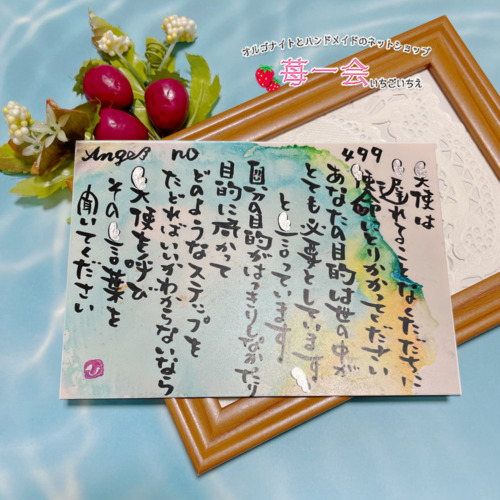 オルゴナイトとハンドメイドのネットショップ
苺一会
いちごいちえ
Angel no
499
天使は
遅れることなくただちに
使命にとりかかってください
あなたの目的は世の中が
とても必要としています
と言っています
自分の目的がはっきりしなかったり
目的に向かって
どのようなステップを
たどればいいかわからないなら
天使を呼び
その言葉を
聞いてください